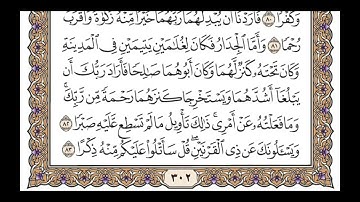 وَكُفْرًا ٨٠ فَأَرَدْنَا أَن يُبْدِلَهُمَا رَبُّهُمَا خَيْرًا مِّنْهُ زَكَوٰةً وَأَقْرَبَ
رُحْمًا ٨١ وَأَمَّا ٱلْجِدَارُ فَكَانَ لِغُلَٰمَيْنِ يَتِيمَيْنِ فِى ٱلْمَدِينَةِ
وَكَانَ تَحْتَهُۥ كَنزٌ لَّهُمَا وَكَانَ أَبُوهُمَا صَٰلِحًا فَأَرَادَ رَبُّكَ أَن
يَبْلُغَآ أَشُدَّهُمَا وَيَسْتَخْرِجَا كَنزَهُمَا رَحْمَةً مِّن رَّبِّكَ ۚ
وَمَا فَعَلْتُهُۥ عَنْ أَمْرِى ۚ ذَٰلِكَ تَأْوِيلُ مَا لَمْ تَسْطِع عَّلَيْهِ صَبْرًا ٨٢
وَيَسْـَٔلُونَكَ عَن ذِى ٱلْقَرْنَيْنِ ۖ قُلْ سَأَتْلُوا۟ عَلَيْكُم مِّنْهُ ذِكْرًا ٨٣
٣٠٢